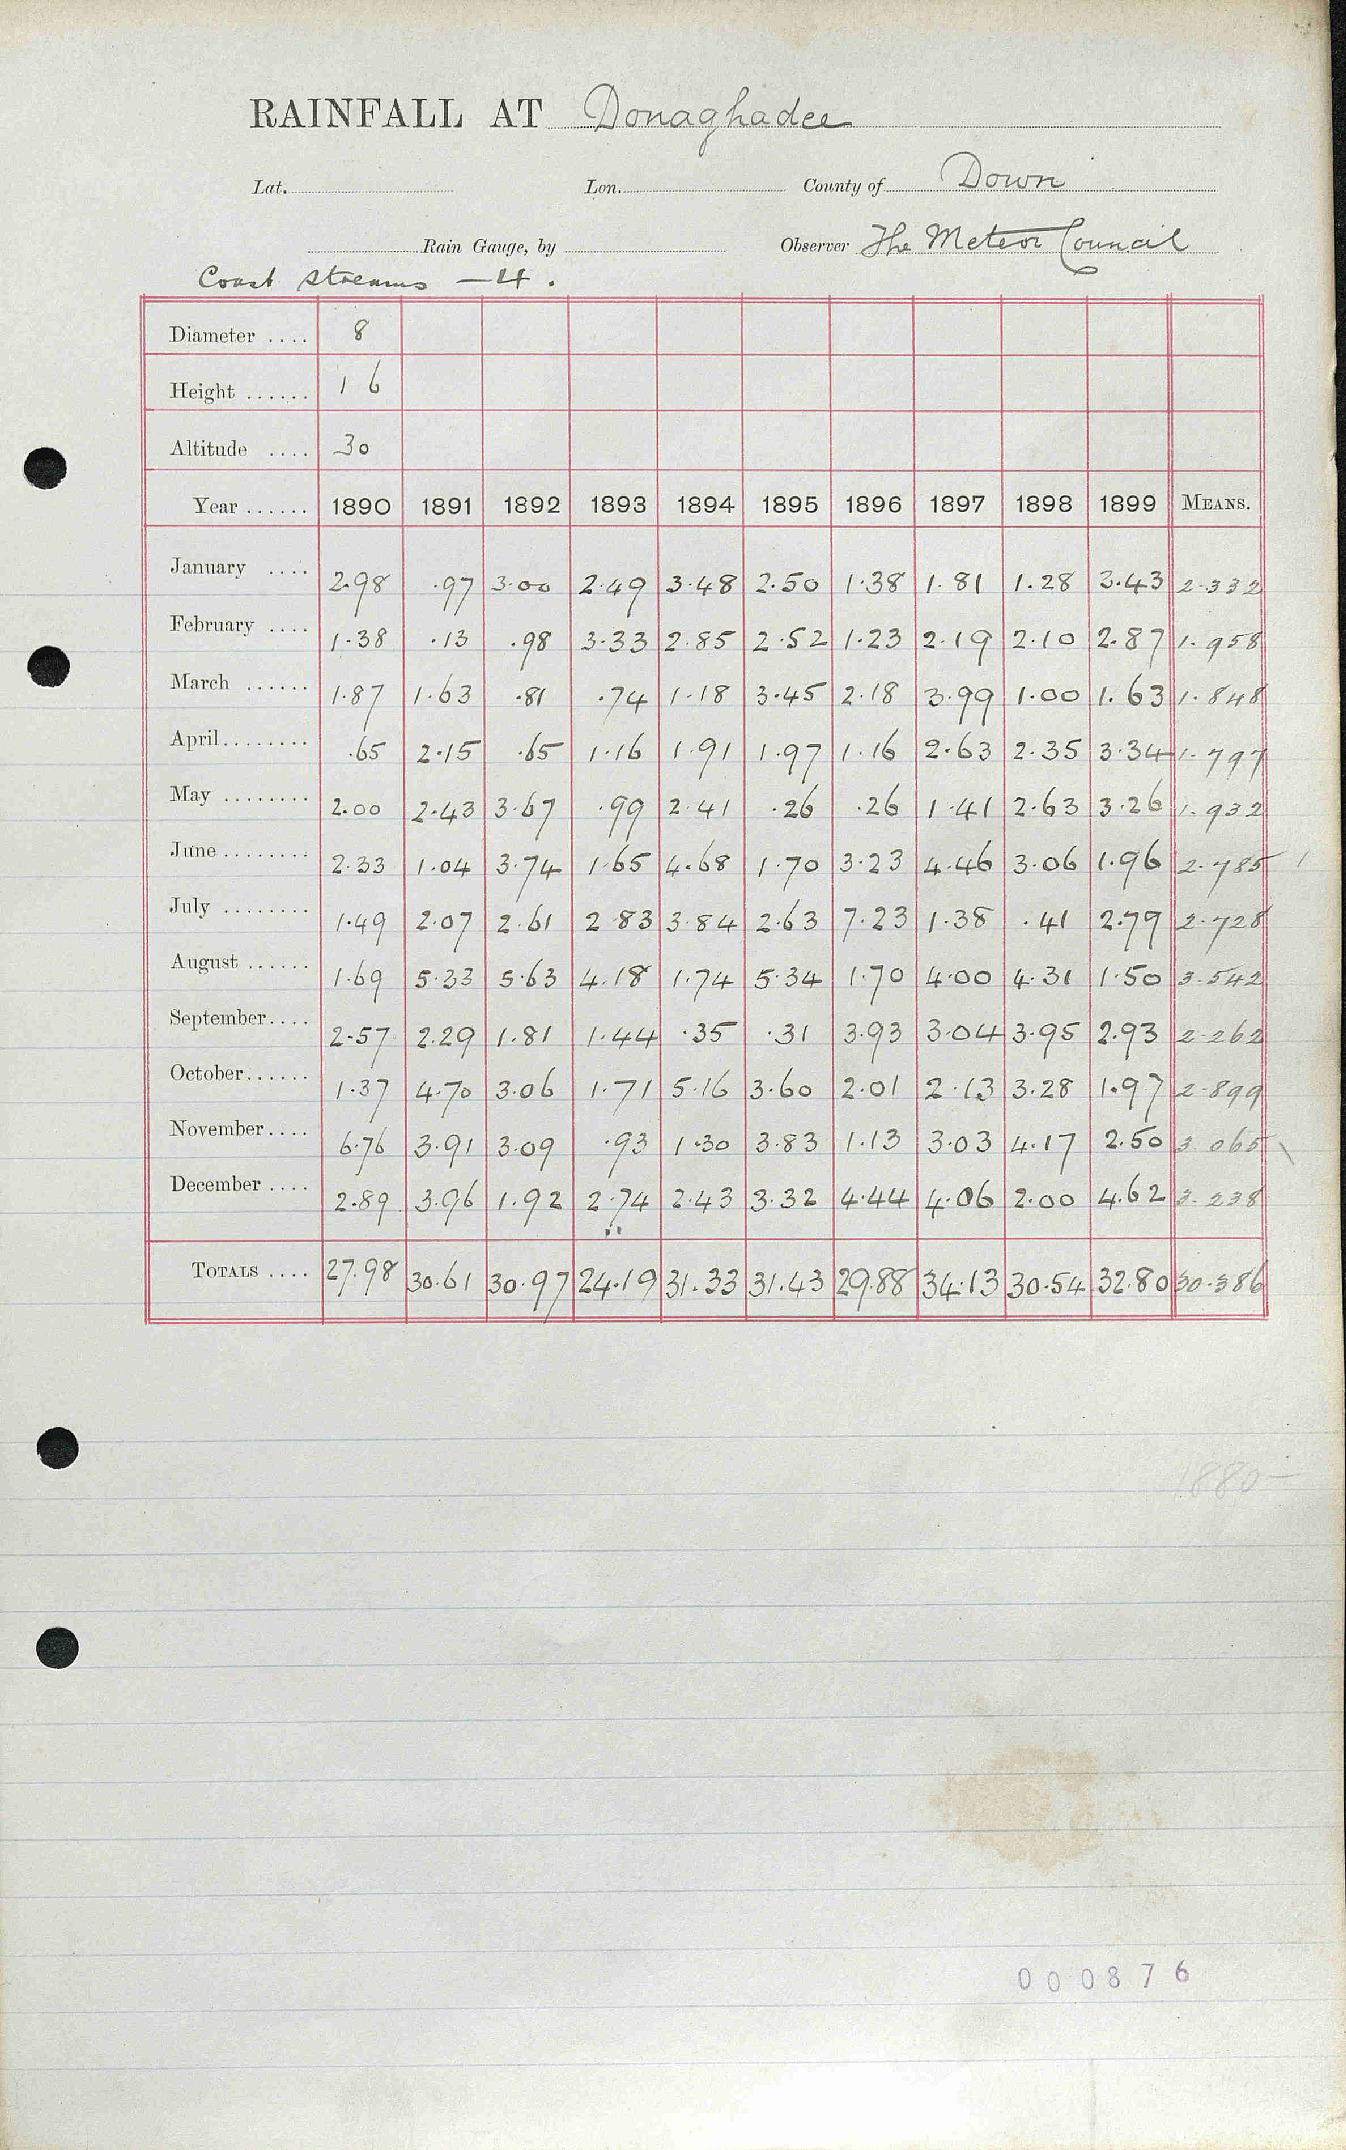 RAINFALL AT Donaghadee
Lat. Lon. County of Down
Rain Gauge, by Observer The Meteor Council
Coast Streams — 4.
Diameter .... 8
Height ...... 1 6
Altitude .... 30
Year ...... 1890 1891 1892 1893 1894 1895 1896 1897 1898 1899 MEANS.
January .... 2.98 .97 3.00 2.49 3.48 2.50 1.38 1.81 1.28 3.43 2.332
February .... 1.38 .13 .98 3.33 2.85 2.52 1.23 2.19 2.10 2.87 1.958
March ...... 1.87 1.63 .81 .74 1.18 3.45 2.18 3.99 1.00 1.63 1.848
April........ .65 2.15 .65 1.16 1.91 1.97 1.16 2.63 2.35 3.34 1.797
May ........ 2.00 2.43 3.67 .99 2.41 .26 .26 1.41 2.63 3.26 1.932
June ........ 2.33 1.04 3.74 1.65 4.68 1.70 3.23 4.46 3.06 1.96 2.785
July ........ 1.49 2.07 2.61 2.83 3.84 2.63 7.23 1.38 .41 2.79 2.728
August ...... 1.69 5.33 5.63 4.18 1.74 5.34 1.70 4.00 4.31 1.50 3.542
September.... 2.57 2.29 1.81 1.44 .35 .31 3.93 3.04 3.95 2.93 2.262
October...... 1.37 4.70 3.06 1.71 5.16 3.60 2.01 2.13 3.28 1.97 2.899
November.... 6.76 3.91 3.09 .93 1.30 3.83 1.13 3.03 4.17 2.50 3.065
December .... 2.89 3.96 1.92 2.74 2.43 3.32 4.44 4.06 2.00 4.62 3.238
TOTALS .... 27.98 30.61 30.97 24.19 31.33 31.43 29.88 34.13 30.54 32.80 30.386
1880-
000876